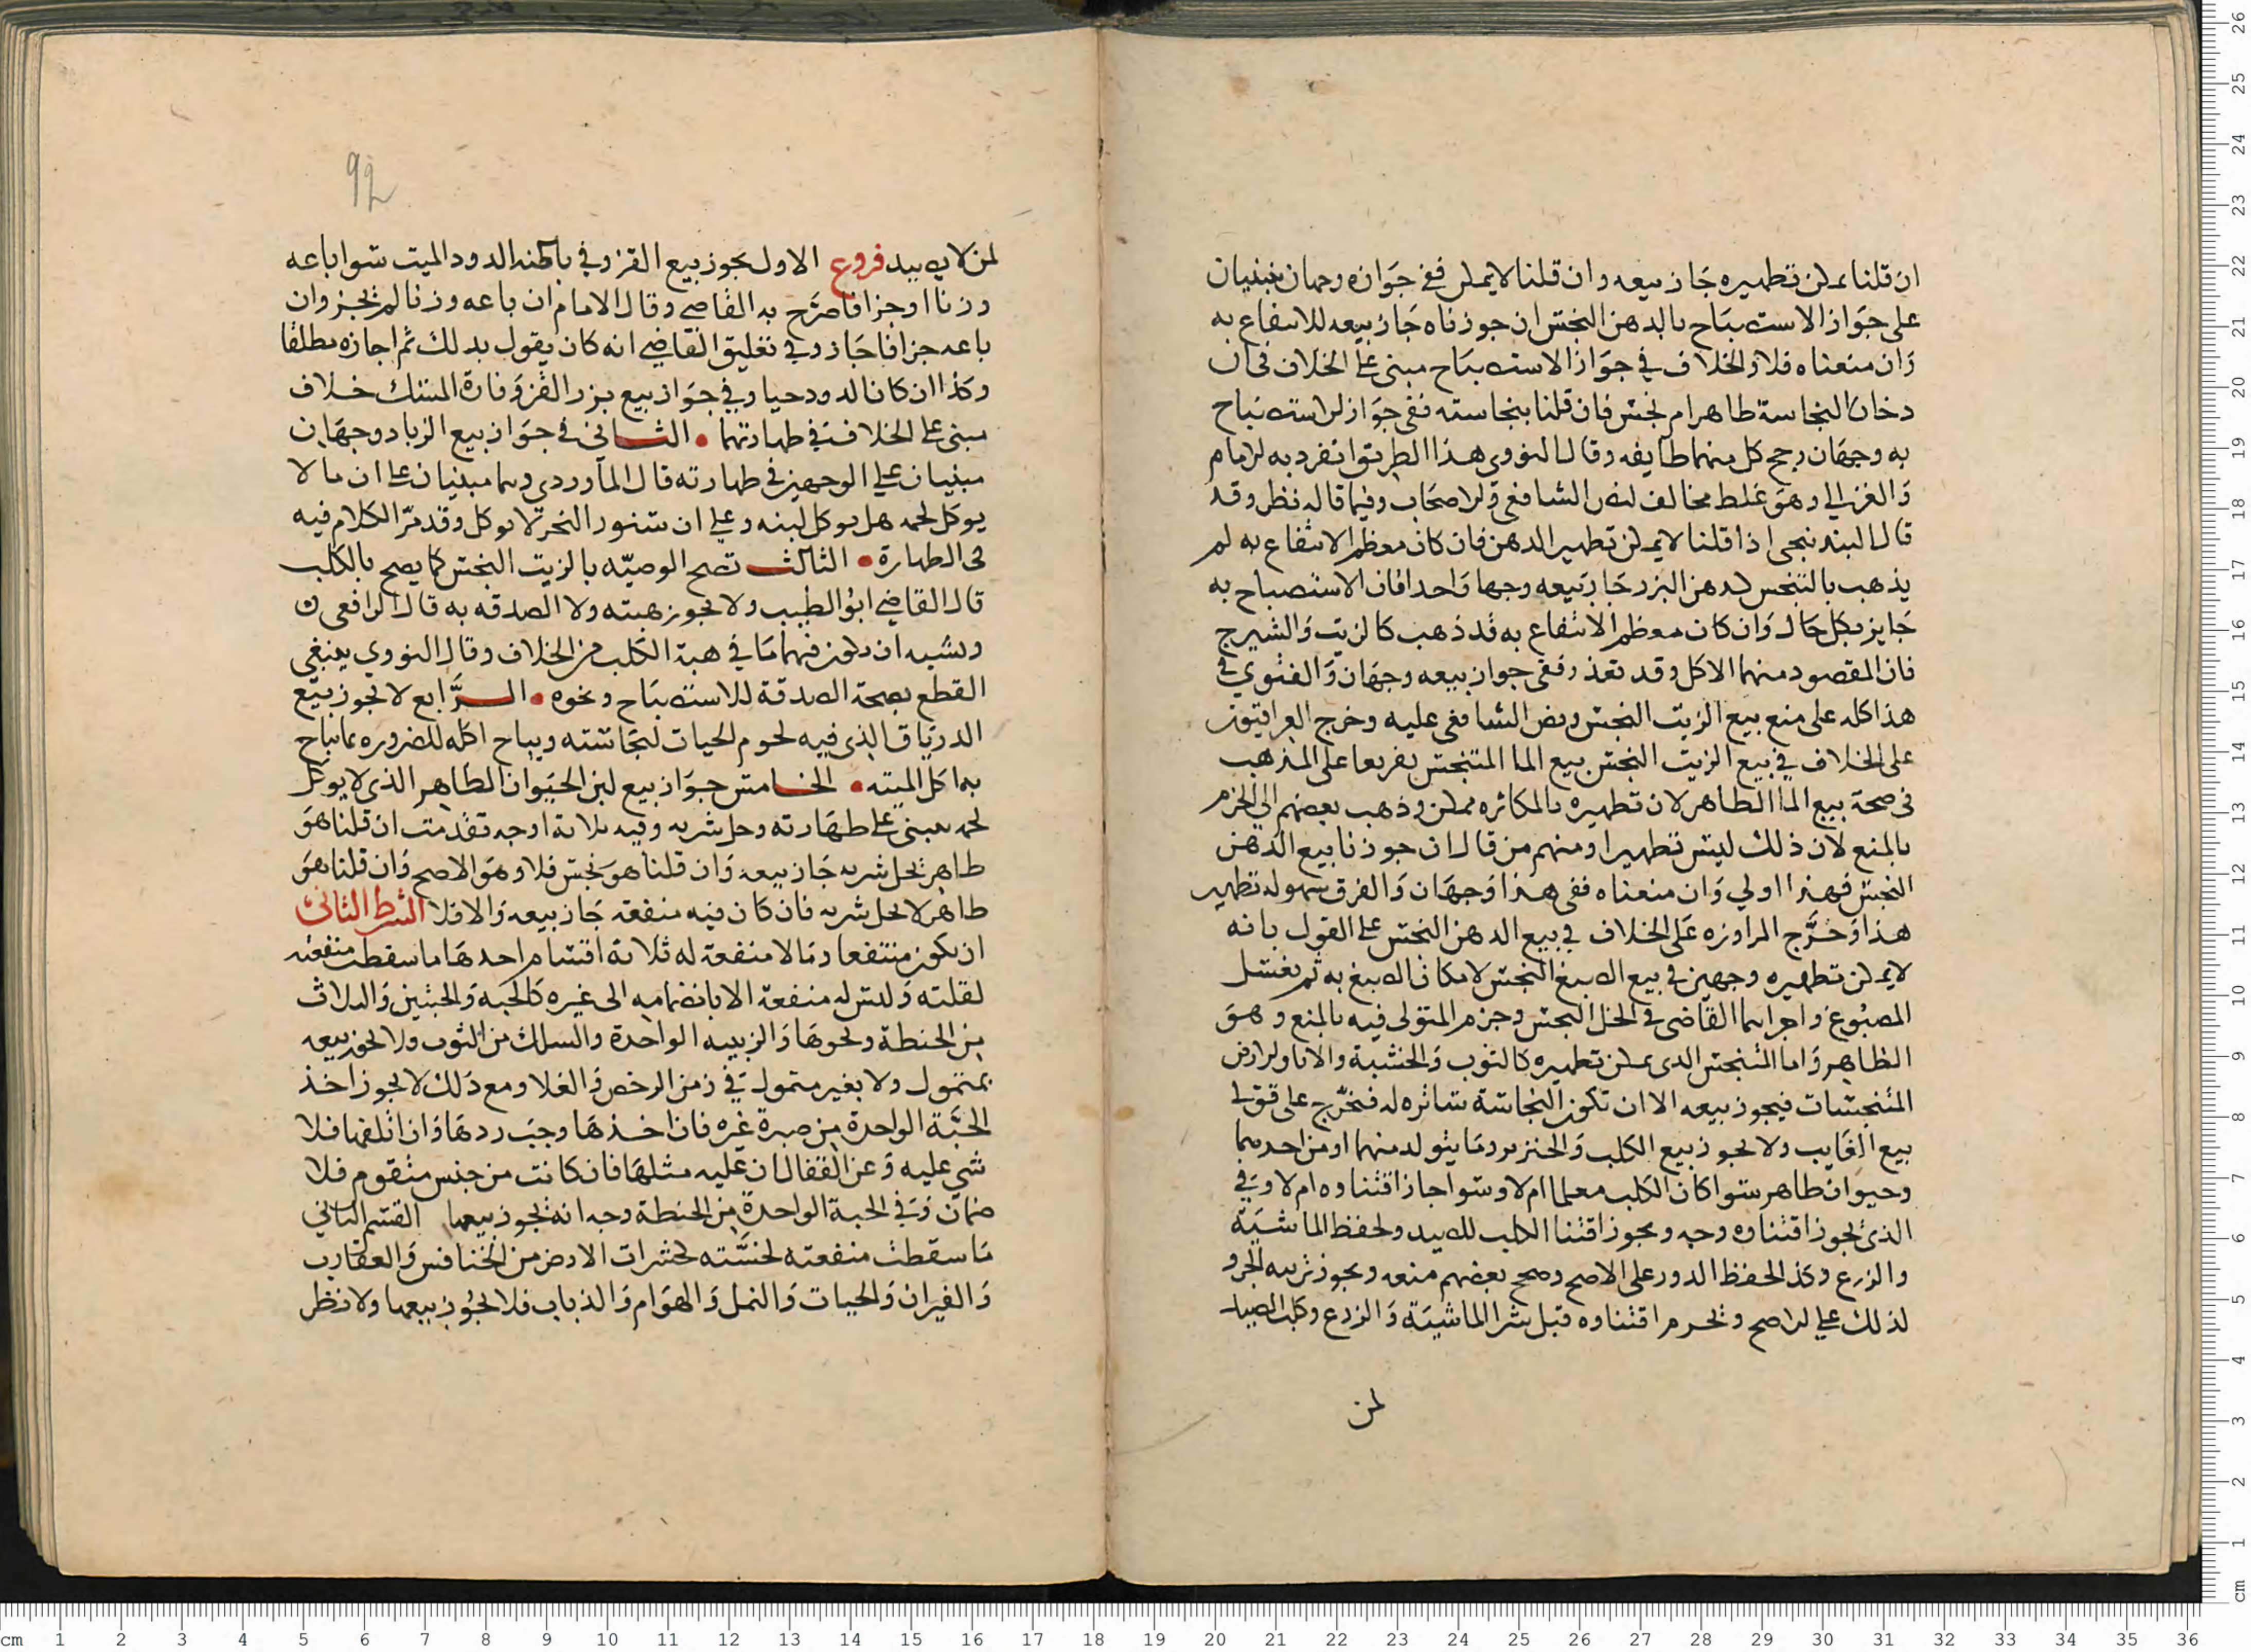 ان قلنا يمكن تطهيره جاز بيعه وان قلنا لا يمكن ففي جوازه وجهان مبنيان
على جواز الاستصباح بالدهن النجس ان جوزناه جاز بيعه للانتفاع به
وان منعناه فلا والخلاف في جواز الاستصباح مبني على الخلاف في ان
دخان النجاسة طاهر ام نجس فان قلنا بنجاسته ففي جواز الاستصباح
به وجهان رجح كل منهما طايفه وقال النووي هذا الطريق انفرد به الامام
والغزالي وهو غلط مخالف لنص الشافعي والاصحاب وفيما قاله نظر وقد
قال البندنيجي اذا قلنا لا يمكن تطهير الدهن فان كان معظم الانتفاع به لم
يذهب بالتنجس كدهن البزر جاز بيعه وجها واحدا فان الاستصباح به
جايز بكل حال وان كان معظم الانتفاع به قد ذهب كالزيت والشيرج
فان المقصود منهما الاكل وقد تعذر ففي جواز بيعه وجهان والفتوي في
هذا كله على منع بيع الزيت النجس ونص الشافعي عليه وخرج العراقيون
على الخلاف في بيع الزيت النجس بيع الما المتنجس تفريعا على المذهب
في صحة بيع الما الطاهر لان تطهيره بالمكاثره ممكن وذهب بعضهم الى الجزم
بالمنع لان ذلك ليس تطهيرا ومنهم من قال ان جوزنا بيع الدهن
النجس فهذا اولي وان منعناه ففي هذا وجهان والفرق سهوله تطهير
هذا وخرَّج المراوزه على الخلاف في بيع الدهن النجس على القول بانه
لا يمكن تطهيره وجهين في بيع الصبغ النجس لامكان الصبغ به ثم يغسل
المصبوغ واجراهما القاضي في الخل النجس وجزم المتولي فيه بالمنع وهو
الظاهر واما المتنجس الدي يمكن تطهيره كالثوب والخشبة والاناوالارض
المتنجسات فيجوز بيعه الا ان تكون النجاسة ساتره له فتخرج على قولي
بيع الغايب ولا يجوز بيع الكلب والخنزير وما يتولد منهما او من احدهما
وحيوان طاهر سوا كان الكلب معلما ام لا وسوا جاز اقتناوه ام لا وفي
الذي يجوز اقتناوه وجه ويجوز اقتنا الكلب للصيد ولحفظ الماشية
والزرع وكذا لحفظ الدور على الاصح وصحح بعضهم منعه ويجوز تربيه الجرو
لذلك على الاصح ويحرم اقتناوه قبل شرا الماشية والزرع وكلب الصيد
لمن
92
لمن لا يصيد فروع الاول يجوز بيع القز وفي باطنه الدود الميت سوا باعه
وزنا او جزافا صرَّح به القاضي وقال الامام ان باعه وزنا لم يجز وان
باعه جزافا جاز وفي تعليق القاضي انه كان يقول بذلك ثم اجازه مطلقا
وكذا ان كان الدود حيا وفي جواز بيع بزر القز وفارة المسك خلاف
مبني على الخلاف في طهارتهما • الثاني في جواز بيع الزباد وجهان
مبنيان على الوجهين في طهارته قال الماوردي وهما مبنيان على ان ما لا
يوكل لحمه هل يوكل لبنه وعلى ان سنور البحر لا يوكل وقد مرّ الكلام فيه
في الطهارة • الثالث تصح الوصيّه بالزيت النجس كما يصح بالكلب
قال القاضي ابو الطيب ولا يجوز هبته ولا الصدقه به قال الرافعي
ويشبه ان يكون فيهما ما في هبة الكلب من الخلاف وقال النووي ينبغي
القطع بصحة الصدقة للاستصباح ونحوه • الرَّابع لا يجوز بيع
الدرياق الذي فيه لحوم الحيات لنجاسته ويباح اكله للضروره بما يباح
به اكل الميته • الخامس جواز بيع لبن الحيوان الطاهر الذي لا يوكل
لحمه مبني على طهارته وحل شربه وفيه ثلاثة اوجه تقدمت ان قلنا هو
طاهر يحل شربه جاز بيعه وان قلنا هو نجس فلا وهو الاصح وان قلنا هو
طاهر لا يحل شربه فان كان فيه منفعة جاز بيعه والا فلا الشرط الثاني
ان يكون منتفعا وما لا منفعة له ثلاثة اقسام احدها ما سقطت منفعته
لقلته وليس له منفعة الا بانضمامه الى غيره كالحبه والحبتين والثلاث
من الحنطة ونحوها والزبيبه الواحدة والسلك من الثوب ولا يجوز بيعه
بمتمول ولا بغير متمول في زمن الرخص والغلا ومع ذلك لا يجوز اخذ
الحبَّة الواحدة من صبرة غيره فان اخذها وجب ردها وان اتلفها فلا
شي عليه وعن القفال ان عليه مثلها فان كانت من جنس متقوم فلا
ضمان وفي الحبة الواحدة من الحنطة وجه انه يجوز بيعها القسم الثاني
ما سقطت منفعته لخسَّته كحشرات الارض من الخنافس والعقارب
والفيران والحيات والنمل والهوام والذباب فلا يجوز بيعها ولا نظر